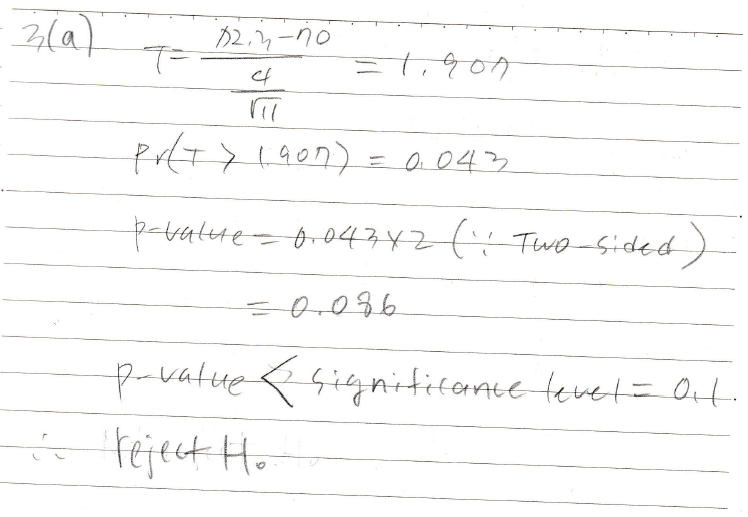 3(a) T = (72.3 - 70) / (4 / √11) = 1.907
Pr(T > 1.907) = 0.043
p-value = 0.043 × 2 (∵ Two-sided)
= 0.086
p-value < significance level = 0.1.
∴ reject H₀